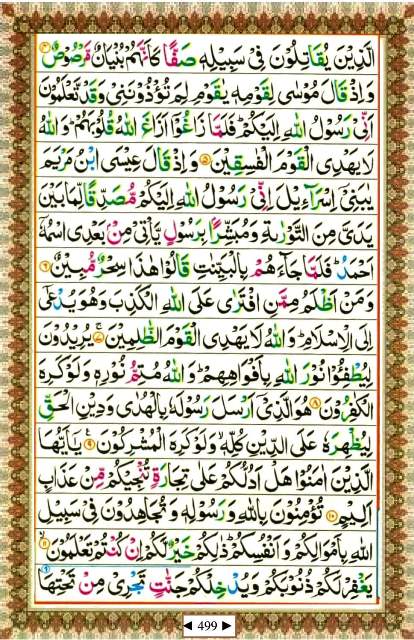 الَّذِيْنَ يُقَاتِلُوْنَ فِىْ سَبِيْلِهٖ صَفًّا كَاَنَّهُمْ بُنْيَانٌ مَّرْصُوْصٌ ۴
وَاِذْ قَالَ مُوْسٰى لِقَوْمِهٖ يٰقَوْمِ لِمَ تُؤْذُوْنَنِىْ وَقَدْ تَّعْلَمُوْنَ
اَنِّىْ رَسُوْلُ اللّٰهِ اِلَيْكُمْ ؕ فَلَمَّا زَاغُوْۤا اَزَاغَ اللّٰهُ قُلُوْبَهُمْ ؕ وَاللّٰهُ
لَا يَهْدِى الْقَوْمَ الْفٰسِقِيْنَ ۵ وَاِذْ قَالَ عِيْسَى ابْنُ مَرْيَمَ
يٰبَنِىْۤ اِسْرَآءِيْلَ اِنِّىْ رَسُوْلُ اللّٰهِ اِلَيْكُمْ مُّصَدِّقًا لِّمَا بَيْنَ
يَدَىَّ مِنَ التَّوْرٰىةِ وَمُبَشِّرًۢا بِرَسُوْلٍ يَّاْتِىْ مِنْۢ بَعْدِى اسْمُهٗۤ
اَحْمَدُ ؕ فَلَمَّا جَآءَهُمْ بِالْبَيِّنٰتِ قَالُوْا هٰذَا سِحْرٌ مُّبِيْنٌ ۶
وَمَنْ اَظْلَمُ مِمَّنِ افْتَرٰى عَلَى اللّٰهِ الْكَذِبَ وَهُوَ يُدْعٰۤى
اِلَى الْاِسْلَامِ ؕ وَاللّٰهُ لَا يَهْدِى الْقَوْمَ الظّٰلِمِيْنَ ۷ يُرِيْدُوْنَ
لِيُطْفِـُٔوْا نُوْرَ اللّٰهِ بِاَفْوَاهِهِمْ ؕ وَاللّٰهُ مُتِمُّ نُوْرِهٖ وَلَوْ كَرِهَ
الْكٰفِرُوْنَ ۸ هُوَ الَّذِىْۤ اَرْسَلَ رَسُوْلَهٗ بِالْهُدٰى وَدِيْنِ الْحَقِّ
لِيُظْهِرَهٗ عَلَى الدِّيْنِ كُلِّهٖ ۙ وَلَوْ كَرِهَ الْمُشْرِكُوْنَ ۹ يٰۤاَيُّهَا
الَّذِيْنَ اٰمَنُوْا هَلْ اَدُلُّكُمْ عَلٰى تِجَارَةٍ تُنْجِيْكُمْ مِّنْ عَذَابٍ
اَلِيْمٍ ۱۰ تُؤْمِنُوْنَ بِاللّٰهِ وَرَسُوْلِهٖ وَتُجَاهِدُوْنَ فِىْ سَبِيْلِ
اللّٰهِ بِاَمْوَالِكُمْ وَاَنْفُسِكُمْ ؕ ذٰلِكُمْ خَيْرٌ لَّكُمْ اِنْ كُنْتُمْ تَعْلَمُوْنَ ۱۱
يَغْفِرْ لَكُمْ ذُنُوْبَكُمْ وَيُدْخِلْكُمْ جَنّٰتٍ تَجْرِىْ مِنْ تَحْتِهَا
499